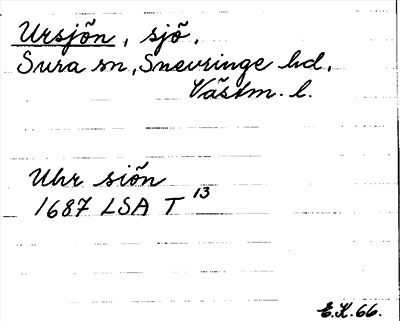 Ursjön, sjö.
Sura sn, Snevringe hd.
Västm. l.
Uhr siön
1687 LSA T 13
E.K.66.